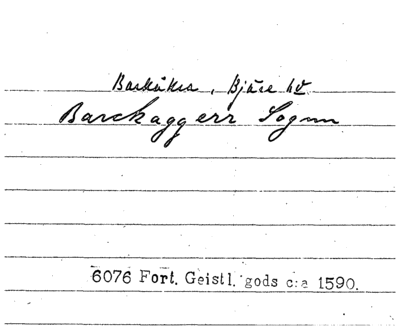 Barkåkra, Bjäre hd
Barckaggerr Sognn
6076 Fort. Geistl. gods c:a 1590.